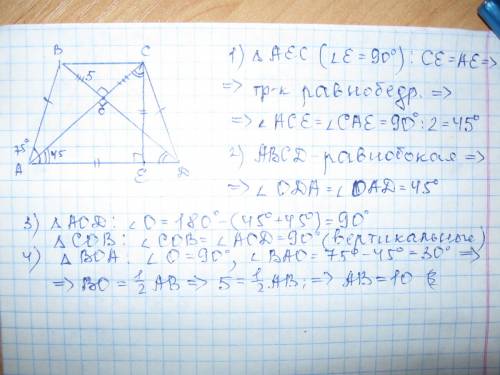 B
C
5
O
75°
45
A
E
D
1) Δ AEC (∠E = 90°): CE = AE =>
=> тр-к равнобедр. =>
=> ∠ACE = ∠CAE = 90° : 2 = 45°
2) ABCD - равнобокая =>
=> ∠ODA = ∠OAD = 45°
3) Δ AOD: ∠O = 180° - (45° + 45°) = 90°
Δ COB: ∠COB = ∠AOD = 90° (вертикальные)
4) Δ BOA: ∠O = 90°, ∠BAO = 75° - 45° = 30° =>
=> BO = 1/2 AB => 5 = 1/2 AB; => AB = 10